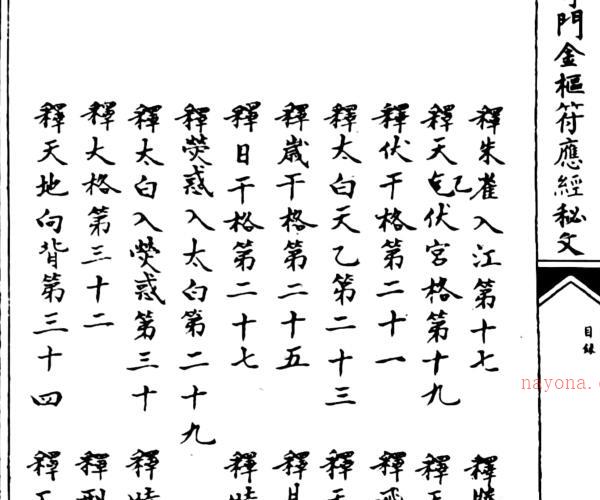 門金樞符應經秘文
目錄
釋朱雀入江第十七 釋
釋天乙伏宮格第十九 釋
釋伏干格第二十一 釋飛
釋太白天乙第二十三 釋
釋歲干格第二十五 釋月
釋日干格第二十七 釋時
釋熒惑入太白第二十九
釋太白入熒惑第三十 釋時
釋大格第三十二 釋刑
釋天地向背第三十四 釋
nayona.c